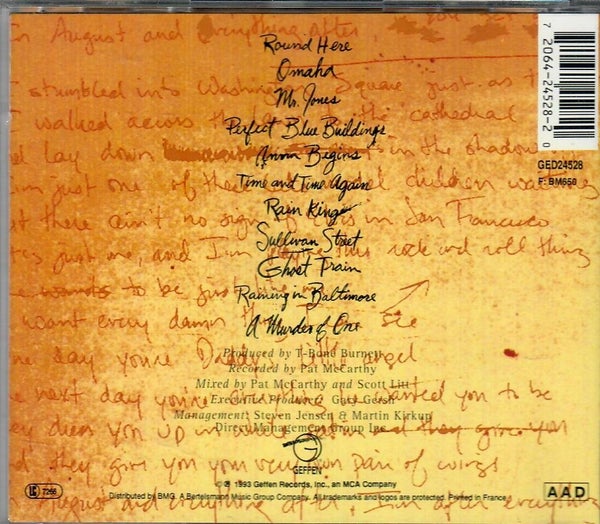 In August and Everything After, you get
Round Here
Omaha
stumbled into Washington Square just as t
Mr. Jones
walked across the cathedral
Perfect Blue Buildings
lay down in the shadow
Anna Begins
Time and Time Again
just one of the children waiting
Rain King
there ain't no sign in San Francisco
Sullivan Street
just me, and I'm this rock and roll thing
Ghost Train
to be just
Raining in Baltimore
want every damn thing I see
A Murder of One
day you're Daddy's little angel
Produced by T-Bone Burnett
Recorded by Pat McCarthy
Mixed by Pat McCarthy and Scott Litt
next day you're wanted you to be
Executive Producer: Gary Gersh
Management: Steven Jensen & Martin Kirkup/
Direct Management Group Inc.
dress you up in and they give you
they give you your very own pair of wings
GEFFEN
℗ © 1993 Geffen Records, Inc., an MCA Company
August and everything after, I'm after everything
Distributed by BMG. A Bertelsmann Music Group Company. All trademarks and logos are protected. Printed in France.
LC 7266
AAD
7 20642-24528-2 0
GED24528
F: BM650